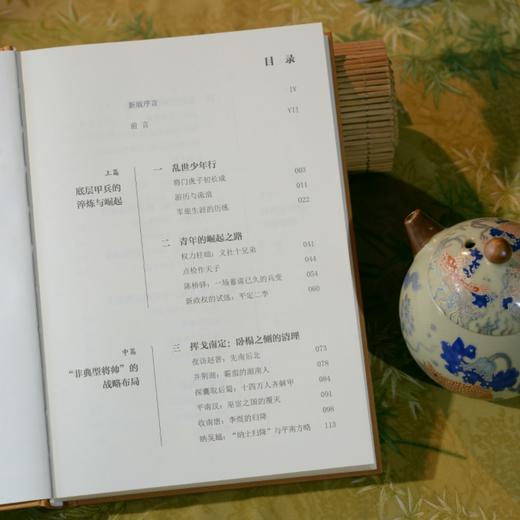 目 录
新版序言 IV
前 言 VII
上篇
底层甲兵的
淬炼与崛起
一 乱世少年行
将门虎子初长成 003
游历与流浪 011
军旅生涯的历练 022
二 青年的崛起之路
权力桂础：义社十兄弟 041
点检作天子 044
陈桥驿：一场蓄谋已久的兵变 054
新政权的试炼：平定二李 060
中篇
“非典型将帅”的
战略布局
三 挥戈南定：卧榻之侧的清理
夜访赵普：先南后北 073
并荆湖：霸蛮的湖南人 078
探囊取后蜀：十四万人齐解甲 084
平南汉：巫宦之国的覆灭 091
收南唐：李煜的归降 098
纳吴越：“纳土归降”与平南方略 113